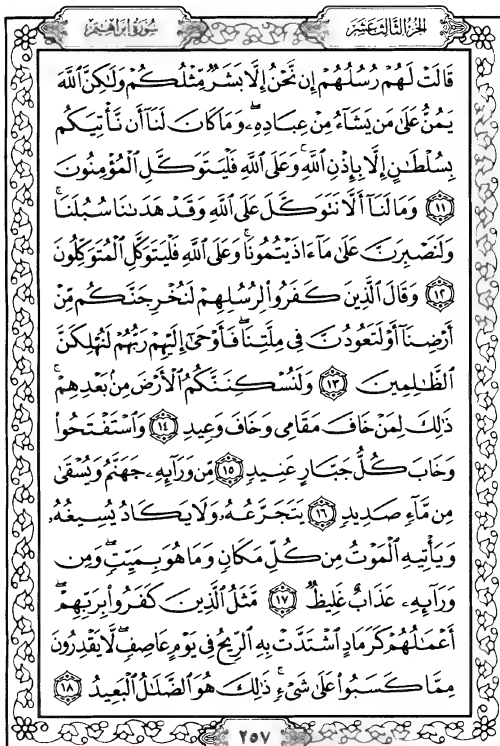 الجزء الثالث عشر
سورة ابراهيم
قَالَتْ لَهُمْ رُسُلُهُمْ إِن نَّحْنُ إِلَّا بَشَرٌ مِّثْلُكُمْ وَلَٰكِنَّ ٱللَّهَ
يَمُنُّ عَلَىٰ مَن يَشَآءُ مِنْ عِبَادِهِۦۖ وَمَا كَانَ لَنَآ أَن نَّأْتِيَكُم
بِسُلْطَٰنٍ إِلَّا بِإِذْنِ ٱللَّهِۚ وَعَلَى ٱللَّهِ فَلْيَتَوَكَّلِ ٱلْمُؤْمِنُونَ
١١ وَمَا لَنَآ أَلَّا نَتَوَكَّلَ عَلَى ٱللَّهِ وَقَدْ هَدَىٰنَا سُبُلَنَاۚ
وَلَنَصْبِرَنَّ عَلَىٰ مَآ ءَاذَيْتُمُونَاۚ وَعَلَى ٱللَّهِ فَلْيَتَوَكَّلِ ٱلْمُتَوَكِّلُونَ
١٢ وَقَالَ ٱلَّذِينَ كَفَرُوا۟ لِرُسُلِهِمْ لَنُخْرِجَنَّكُم مِّنْ
أَرْضِنَآ أَوْ لَتَعُودُنَّ فِى مِلَّتِنَاۖ فَأَوْحَىٰٓ إِلَيْهِمْ رَبُّهُمْ لَنُهْلِكَنَّ
ٱلظَّٰلِمِينَ ١٣ وَلَنُسْكِنَنَّكُمُ ٱلْأَرْضَ مِنۢ بَعْدِهِمْۚ
ذَٰلِكَ لِمَنْ خَافَ مَقَامِى وَخَافَ وَعِيدِ ١٤ وَٱسْتَفْتَحُوا۟
وَخَابَ كُلُّ جَبَّارٍ عَنِيدٍ ١٥ مِّن وَرَآئِهِۦ جَهَنَّمُ وَيُسْقَىٰ
مِن مَّآءٍ صَدِيدٍ ١٦ يَتَجَرَّعُهُۥ وَلَا يَكَادُ يُسِيغُهُۥ
وَيَأْتِيهِ ٱلْمَوْتُ مِن كُلِّ مَكَانٍ وَمَا هُوَ بِمَيِّتٍۖ وَمِن
وَرَآئِهِۦ عَذَابٌ غَلِيظٌ ١٧ مَّثَلُ ٱلَّذِينَ كَفَرُوا۟ بِرَبِّهِمْۖ
أَعْمَٰلُهُمْ كَرَمَادٍ ٱشْتَدَّتْ بِهِ ٱلرِّيحُ فِى يَوْمٍ عَاصِفٍۖ لَّا يَقْدِرُونَ
مِمَّا كَسَبُوا۟ عَلَىٰ شَىْءٍۚ ذَٰلِكَ هُوَ ٱلضَّلَٰلُ ٱلْبَعِيدُ ١٨
٢٥٧